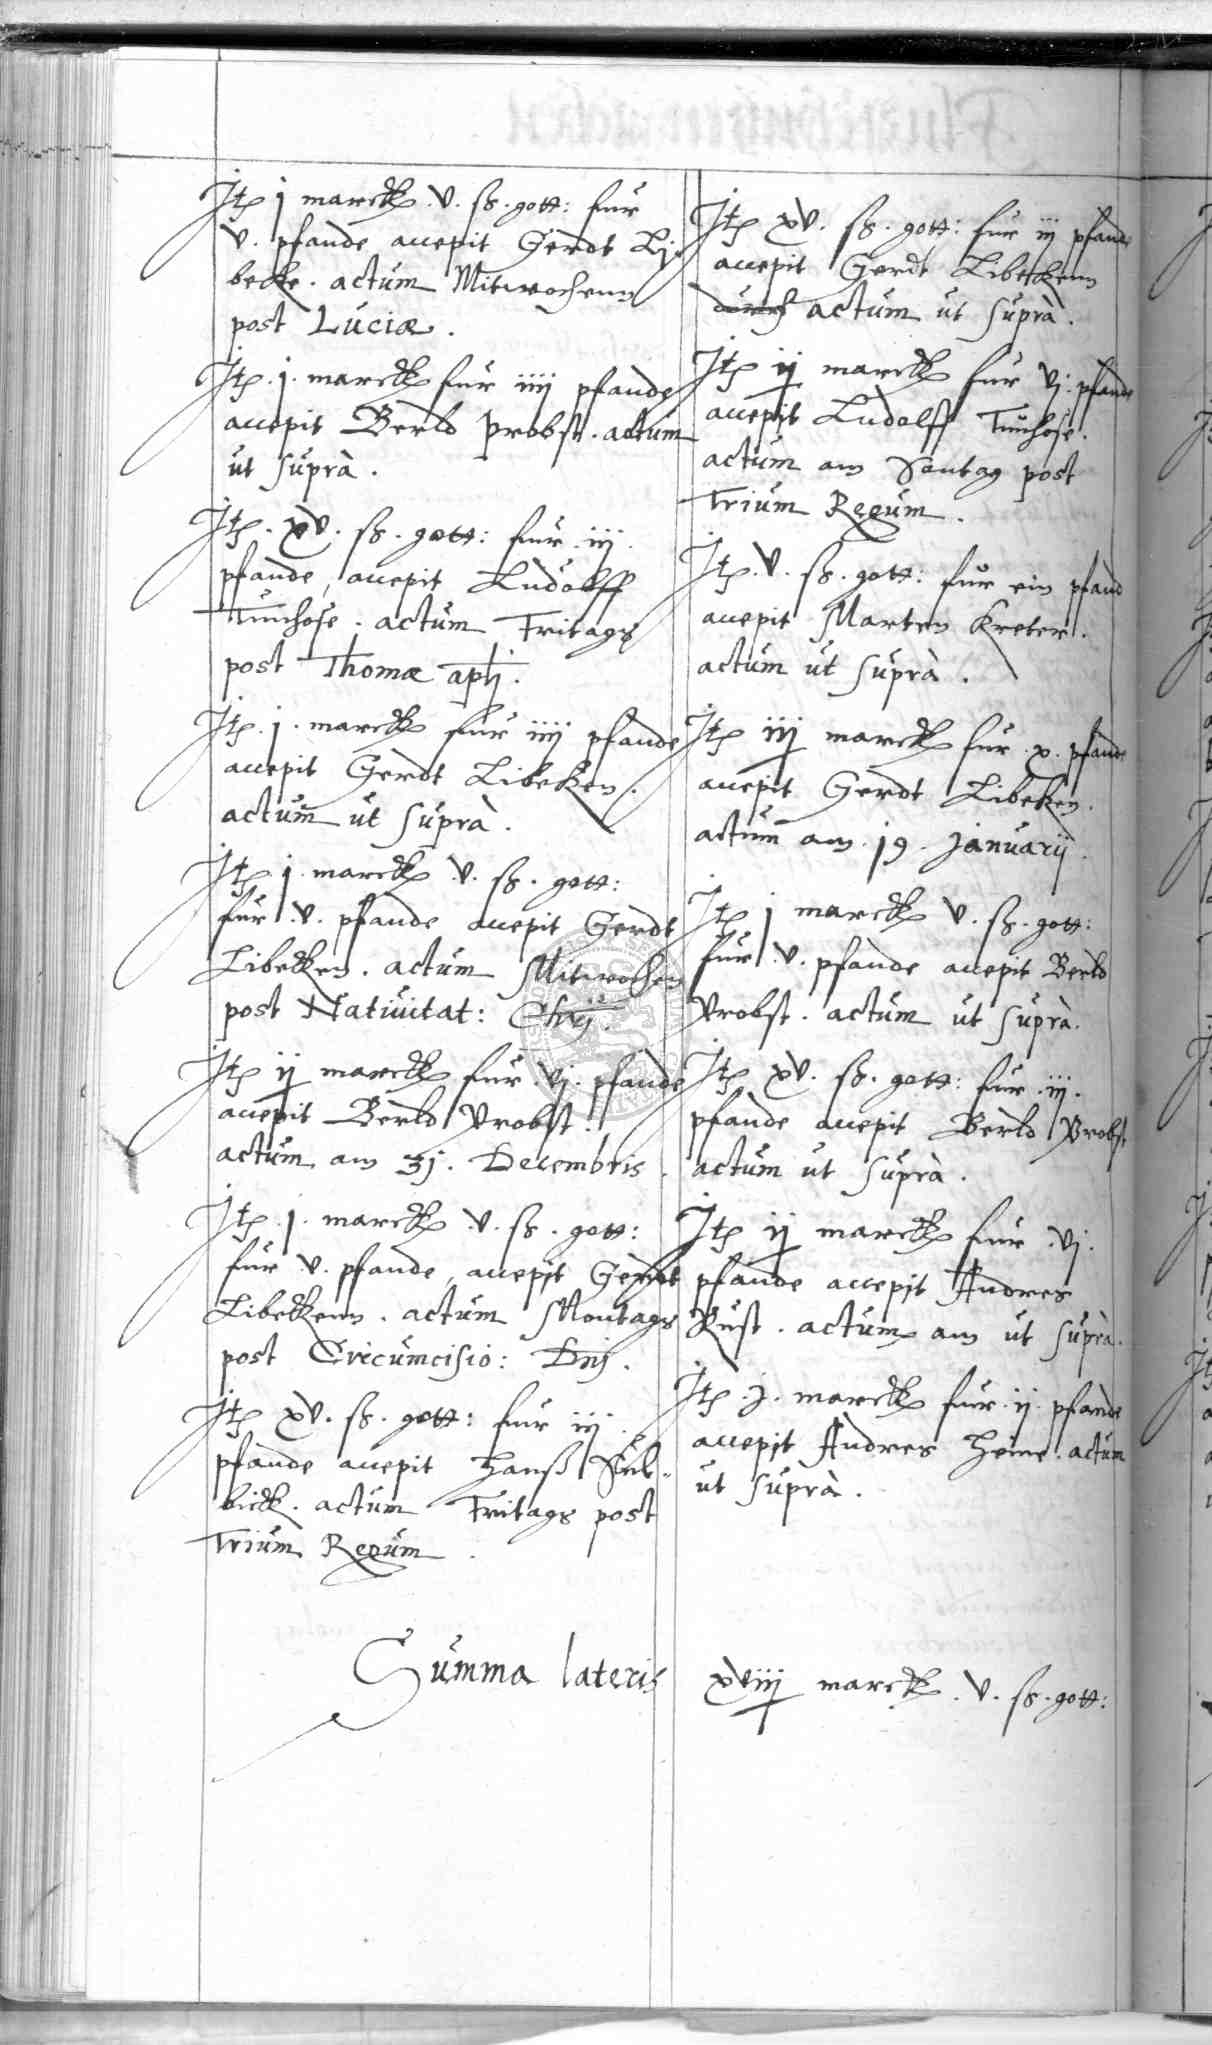 Itē j marck .v. ß. gott: fur
v. pfande accepit Gerdt Li=
becke. actum Mitwochenn
post Luciæ.
Itē .j. marck fur iiij pfande
accepit Berld Probst. actum
ut suprà.
Itē. xv. ß. gott: fur .iij.
pfande, accepit Ludolff
Tunhose. actum Fritags
post Thomæ apłi.
Itē .j. marck fur iiij pfande
accepit Gerdt Libeken.
actum ut suprà.
Itē .j. marck .v. ß. gott:
fur .v. pfande accepit Gerdt
Libecken. actum Mitwochen
post Nativitat: Chrj.
Itē ij marck fur .vj. pfande
accepit Berld Probst.
actum am 31. Decembris.
Itē .j. marck .v. ß. gott:
fur v. pfande, accepit Gerdt
Libeckenn. actum Montags
post Circumcisio: Dnj.
Itē xv. ß. gott: fur iij.
pfande accepit Hanß
actum Fritags post
Trium Regum.
Itē xv. ß. gott: fur iij pfande
accepit Gerdt Libeckenn
actum ut suprà.
Itē ij marck fur vj. pfande
accepit Ludolff Tunhose.
actum am Sontag post
Trium Regum.
Itē .v. ß. gott: fur ein pfand
accepit Marten Kreter.
actum ut suprà.
Itē iij marck fur .x. pfande
accepit Gerdt Libeken.
actum am .19. Januarij.
Itē j marck v. ß. gott:
fur .v. pfande accepit Berld
Probst. actum ut suprà.
Itē xv. ß. gott: fur .iij.
pfande accepit Berld Probst
actum ut suprà.
Itē ij marck fur .vj.
pfande accepit Andres
Rust. actum am ut suprà.
Itē .j. marck fur .ij. pfande
accepit Andres Heine. actum
ut suprà.
Summa lateris xviij marck .v. ß. gott: